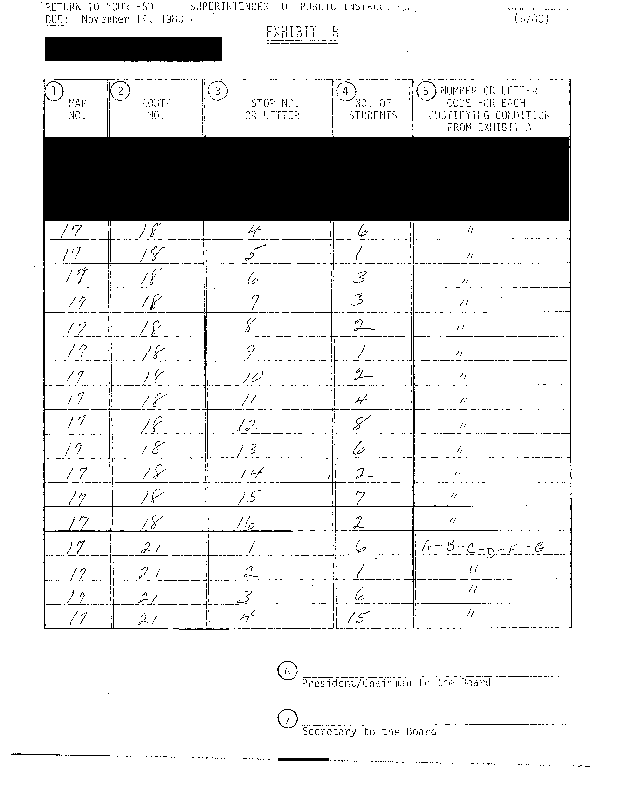 RETURN TO YOUR ESD SUPERINTENDENT OF PUBLIC INSTRUCTION
DUE: November 14, 1980
EXHIBIT B
1 MAP NO. 2 ROUTE NO. 3 STOP NO. OR LETTER 4 NO. OF STUDENTS 5 NUMBER OR LETTER CODE FOR EACH JUSTIFYING CONDITION FROM EXHIBIT A
17 18 4 6 "
17 18 5 1 "
17 18 6 3 "
17 18 7 3 "
17 18 8 2 "
17 18 9 1 "
17 18 10 2 "
17 18 11 4 "
17 18 12 8 "
17 18 13 6 "
17 18 14 2 "
17 18 15 7 "
17 18 16 2 "
17 21 1 6 A-B-C-D-F-G
17 21 2 1 "
17 21 3 6 "
17 21 4 15 "
6
President/Chairman to the Board
7
Secretary to the Board